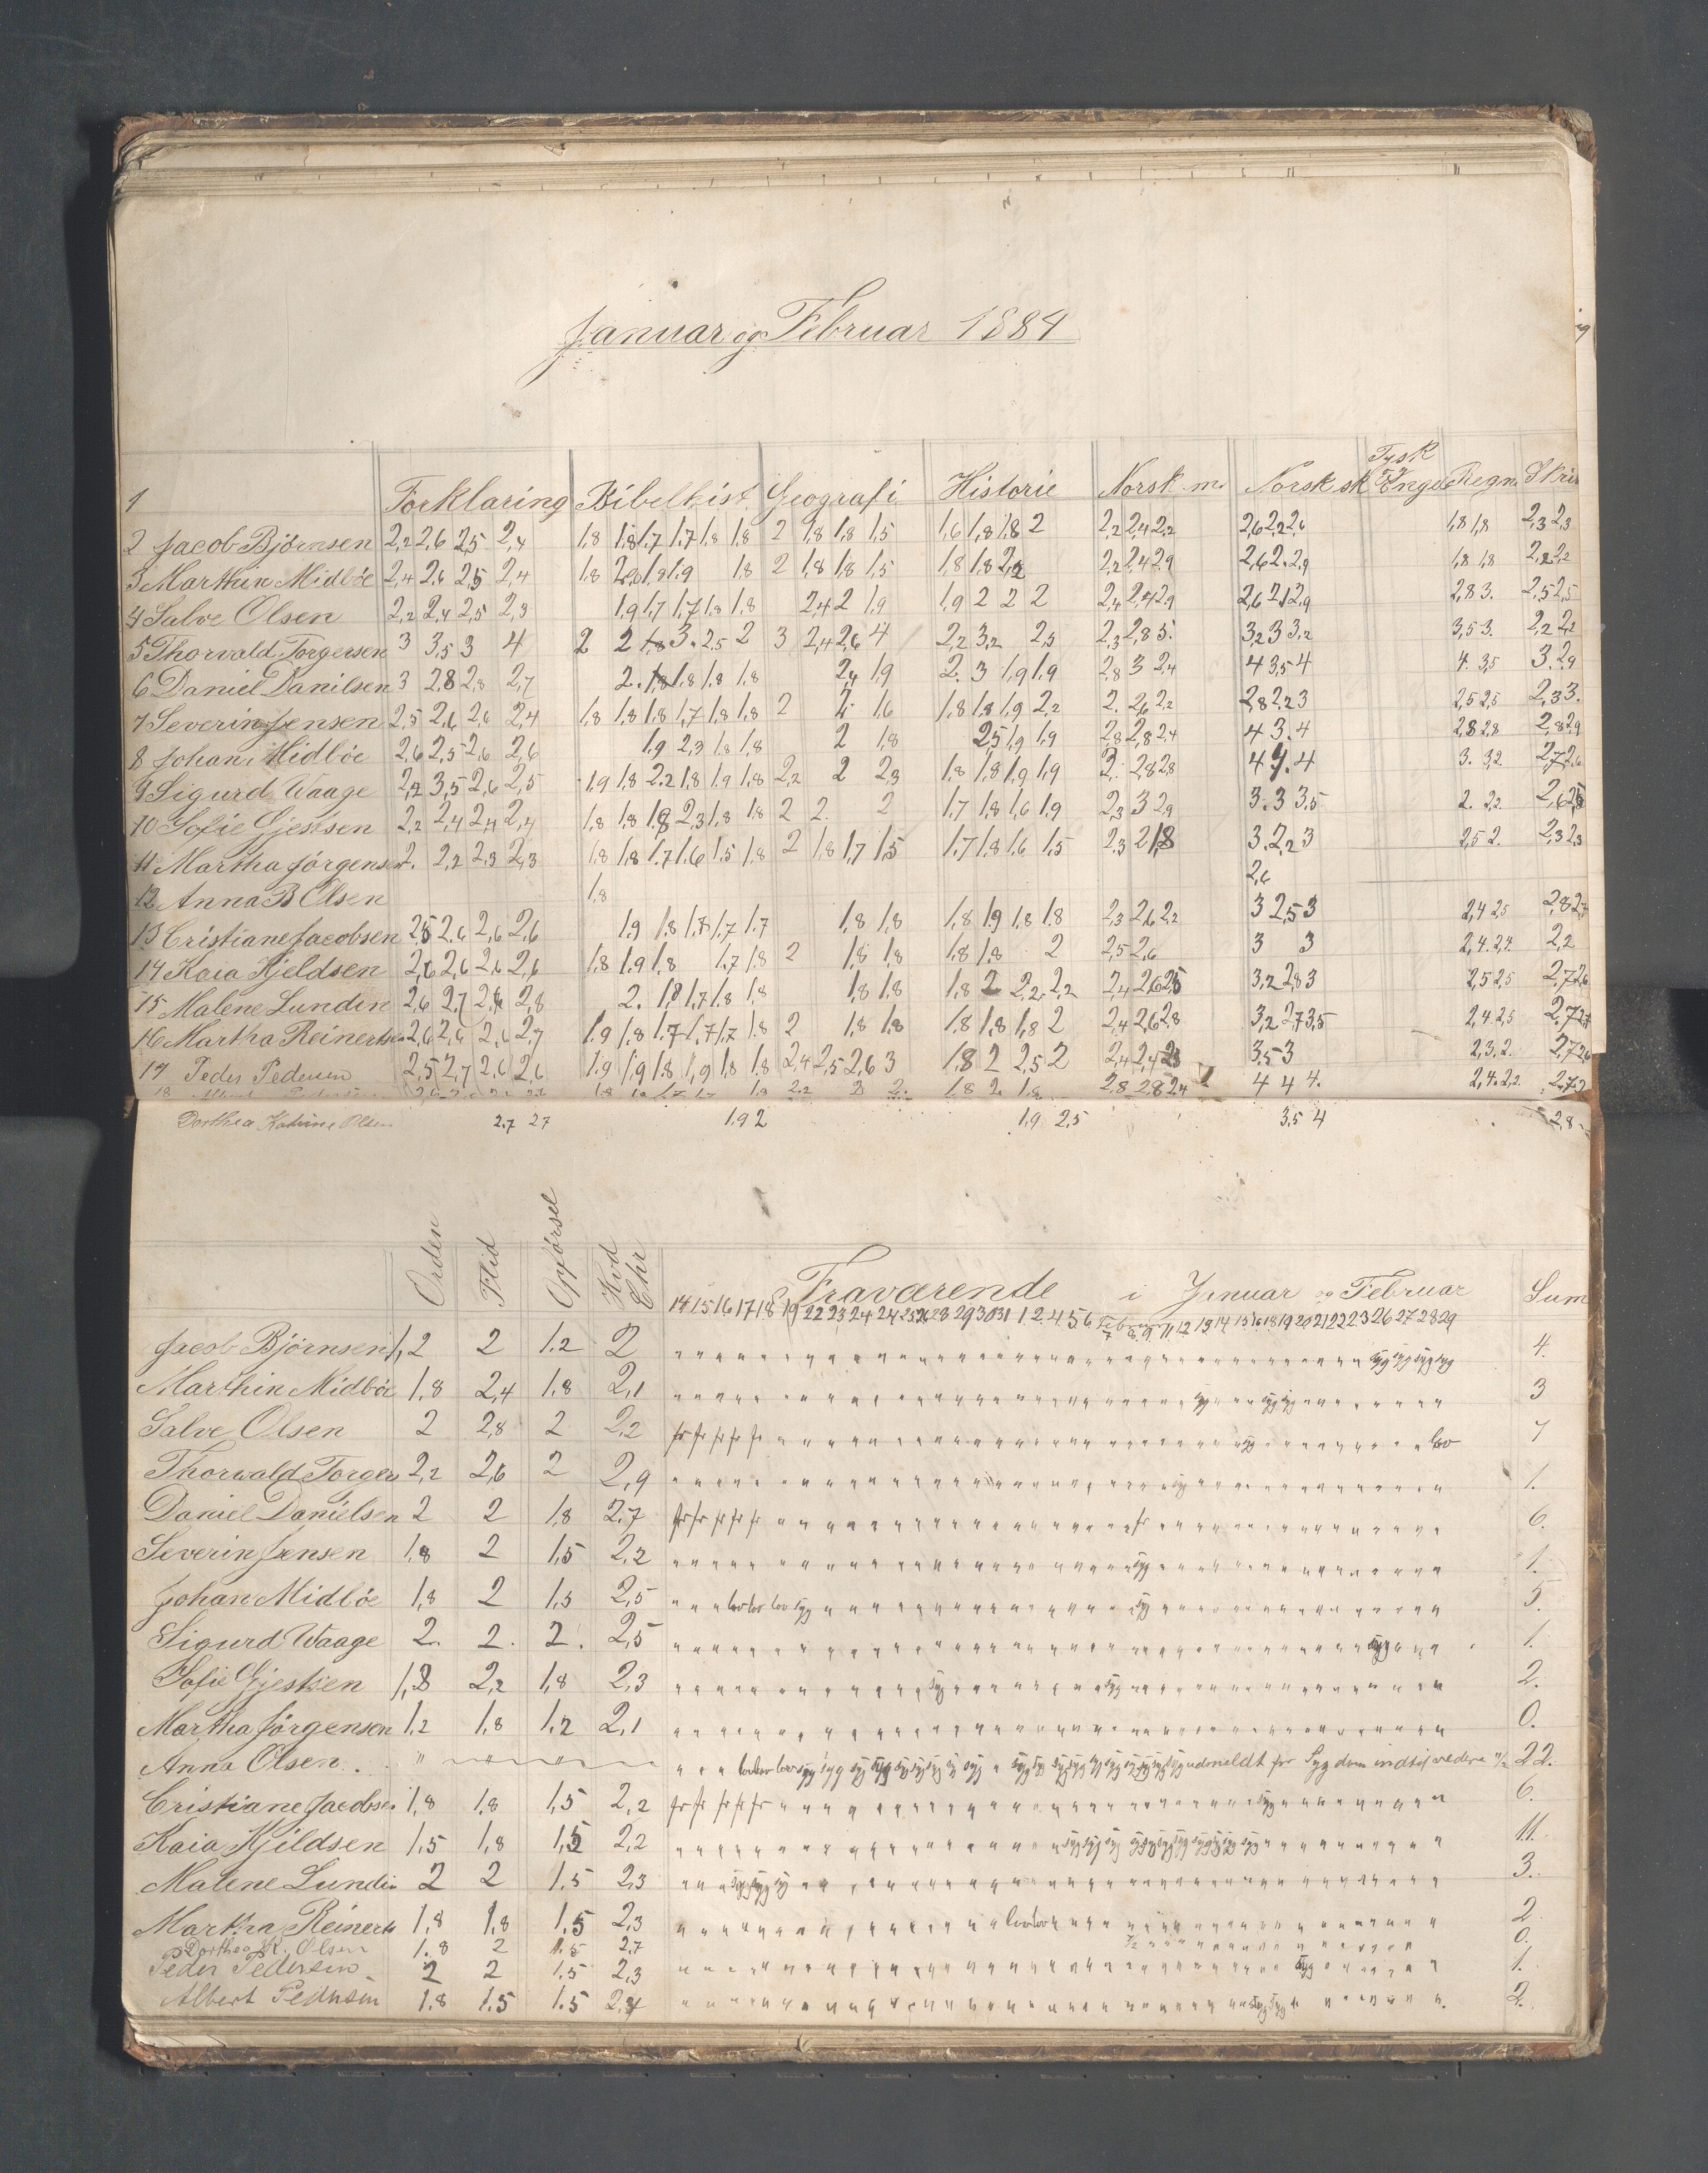 Januar og Februar 1884
1 Forklaring Bibelhist. Geografi Historie Norsk m. Norsk sk Tysk og Enge Regn. Skri
2 Jacob Björnsen 2,2 2,6 2,5 2,4 1,8 1,8 1,7 1,7 1,8 1,8 2 1,8 1,8 1,5 1,6 1,8 1,8 2 2,2 2,4 2,2 2,6 2,2 2,6 1,8 1,8 2,3 2,3
3 Marthin Midböe 2,4 2,6 2,5 2,4 1,8 2,0 1,8 1,9 1,8 2 1,8 1,8 1,5 1,8 1,8 2,2 2,2 2,4 2,9 2,6 2. 2,9 1,8 1,8 2,2 2,2
4 Salve Olsen 2,2 2,4 2,5 2,3 1,9 1,7 1,7 1,8 1,8 2,4 2 1,9 1,9 2 2 2 2,4 2,4 2,9 2,6 2,1 2,9 2,8 3. 2,5 2,5
5 Thorvald Torgersen 3 3,5 3 4 2 2 1,8 3. 2,5 2 3 2,4 2,6 4 2,2 3,2 2,5 2,3 2,8 5. 3,2 3 3,2 3,5 3. 2,2 2,2
6 Daniel Danilsen 3 2,8 2,8 2,7 2. 1,8 1,8 1,8 1,8 2,4 1,9 2. 3 1,9 1,9 2,8 3 2,4 4 3,5 4 4. 3,5 3. 2,9
7 Severin Jensen 2,5 2,6 2,6 2,4 1,8 1,8 1,8 1,7 1,8 1,8 2 2 1,6 1,8 1,8 1,9 2,2 2. 2,6 2,2 2,8 2,2 3 2,5 2,5 2,3 3.
8 Johan Midböe 2,6 2,5 2,6 2,6 1,9 2,3 1,8 1,8 2 1,8 2,5 1,9 1,9 2,8 2,8 2,4 4 3. 4 2,8 2,8 2,8 2,9
9 Sigurd Waage 2,2 3,5 2,6 2,5 1,9 1,8 2,2 1,8 1,9 1,8 2,2 2 2,3 1,8 1,8 1,9 1,9 2. 2,8 2,8 4 4. 4 3. 3,2 2,7 2,6
10 Sofie Gjestsen 2,2 2,4 2,4 2,4 1,8 1,8 1,8 2,3 1,8 1,8 2 2. 2 1,7 1,8 1,6 1,9 2,3 3 2,9 3. 3 3,5 2. 2,2 2,6 2,5
11 Martha Jörgensen 2. 2,2 2,3 2,3 1,8 1,8 1,7 1,6 1,5 1,8 2 1,8 1,7 1,5 1,7 1,8 1,6 1,5 2,3 2 1,8 3. 2,2 3 2,5 2. 2,3 2,3
12 Anna B Olsen 1,8 2,6
13 Cristiane Jacobsen 2,5 2,6 2,6 2,6 1,9 1,8 1,8 1,7 1,7 1,8 1,8 1,8 1,9 1,8 1,8 2,3 2,6 2,2 3 2,5 3 2,4 2,5 2,8 2,7
14 Kaia Kjeldsen 2,6 2,6 2,6 2,6 1,8 1,9 1,8 1,7 1,8 2 1,8 1,8 1,8 1,8 2 2,5 2,6 3 3 2,4. 2,4. 2,2
15 Malene Lundin 2,6 2,7 2,6 2,8 2. 1,8 1,7 1,8 1,8 1,8 1,8 1,8 2 2,2. 2,2 2,4 2,6 2,5 3,2 2,8 3 2,5 2,5 2,7 2,6
16 Martha Reinertsen 2,6 2,6 2,6 2,7 1,9 1,8 1,7 1,7 1,7 1,8 2 1,8 1,8 1,8 1,8 1,8 2 2,4 2,6 2,8 3,2 2,7 3,5 2,4 2,5 2,7 2,7
17 Peder Pedersen 2,5 2,7 2,6 2,6 1,9 1,9 1,8 1,9 1,8 1,8 2,4 2,5 2,6 3 1,8 2 2,5 2 2,4 2,4 2,3 3,5 3 2,3. 2. 2,7 2,6
18 1,8 2,2 1,8 2. 1,8 2,8 2,8 2,4 4 4 4. 2,4. 2,2.
Dorthea Katrine Olsen 2,7 2,7 1,9 2 1,9 2,5 3,5 4 2,8
Orden Flid Opförsel Hvd Chr Fraværende i Januar og Februar Sum
14 15 16 17 18 19 22 23 24 24 25 26 28 29 30 31 1 2 4 5 6 Februar 7 8 9 11 12 13 14 15 16 18 19 20 21 22 23 26 27 28 29
Jacob Björnsen 1,2 2 1.2 2 syg syg syg syg 4.
Marthin Midböe 1,8 2,4 1,8 2,1 syg syg syg 3
Salve Olsen 2 2,8 2 2,2 fr fr fr fr fr syg lov 7
Thorvald Torgers 2,2 2,6 2 2,9 syg 1.
Daniel Danielsen 2 2 1,8 2,7 fr fr fr fr fr fr 6.
Severin Jensen 1,8 2 1,5 2,2 syg 1.
Johan Midböe 1,8 2 1,5 2,5 lov lov lov syg syg 5.
Sigurd Waage 2. 2. 2. 2,5 syg 1.
Sofie Gjestsen 1,8 2,2 1,8 2,3 syg syg 2.
Martha Jörgensen 1,2 1,8 1,2 2,1 0.
Anna Olsen. " " " lov lov lov syg syg syg syg syg syg syg syg syg syg syg syg syg syg syg syg syg syg syg udmeldt for Sygdom indtil videre 22.
Cristiane Jacobse. 1,8 1,8 1,5 2,2 fr fr fr fr fr syg 6.
Kaia Kjildsen 1,5 1,8 1,5 2,2 syg syg syg syg syg syg syg syg syg syg syg 11.
Malene Lundin 2 2 1.5 2,3 syg syg syg 3.
Martha Reinerts 1,8 1,8 1.5 2,3 lov lov 2
Dorthea K. Olsen 1.8 2 1.5 2,7 7/2 0.
Peder Pedersen 2 2 1.5 2,3 syg 1.
Albert Pedersen 1.8 1.5 1.5 2,4 syg syg 2.